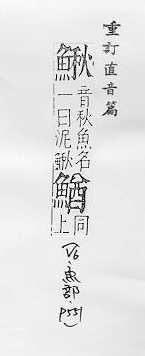 重訂直音篇
鰍音秋魚名
一曰泥鰍
鰌同上
(V6·魚部·P551)